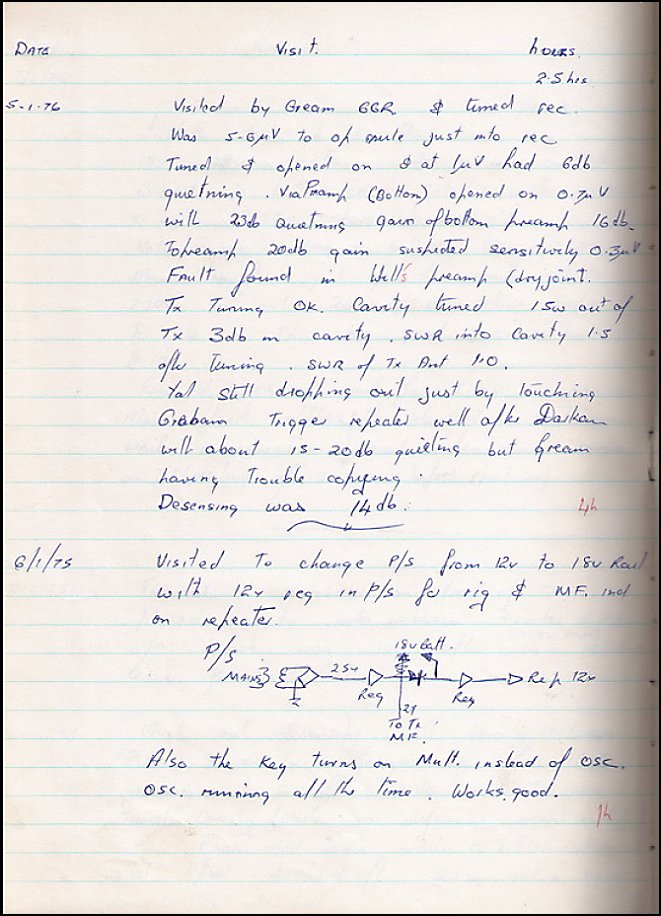 DATE VISIT. hours.
2.5hrs
5-1-76 Visited by Gream GGR & tuned rec.
Was 5-6µV to op mute just into rec
Tuned & opened on & at 1µV had 6db
quietning. Via Pramp (Bottom) opened on 0.7µV
with 23db Quietning gain of bottom preamp 16db.
Topreamp 20db gain suspected sensitivity 0.3µV
Fault found in Well's preamp (dry joint.
Tx Tunning OK. Cavity tuned 15w out of
Tx 3db in cavity. SWR into Cavity 1.5
after tuning. SWR of Tx Ant 1.0.
Yat still dropping out just by touching
Graham Trigger repeater well after Darkan
with about 15-20db quieting but Gream
having Trouble copying.
Desensing was 14db. 4h
6/1/75 Visited To change P/S from 12v to 18v Rail
with 12v reg in P/S for rig & MF. ind
on repeater.
P/S 18v Batt.
MAINS 25v Reg Reg Rep 12v
21
To Tx
MF.
Also the key turns on Mult. instead of osc.
OSC. running all the time. Works good.
1h